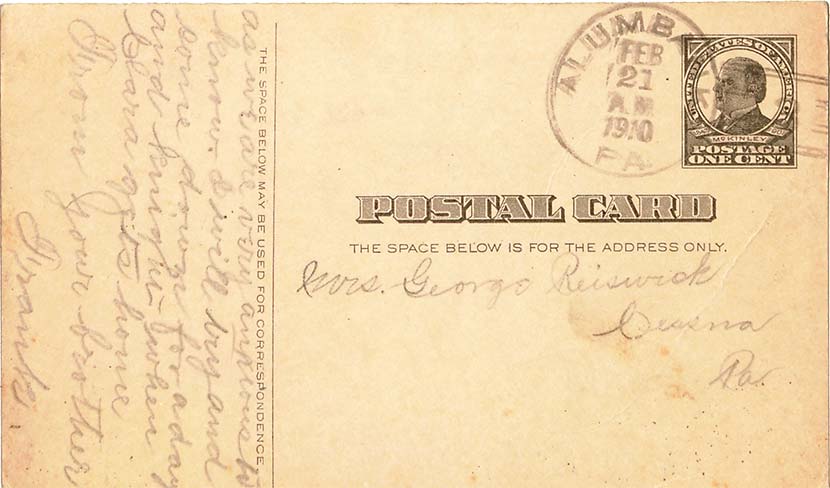 as we are very anxious to
know. I will try and
come down for a day
and knight when
Clara gets home
From your brother
Frank
THE SPACE BELOW MAY BE USED FOR CORRESPONDENCE
ALUMB
FEB
21
A.M
1910
PA
UNITED STATES OF AMERICA
MCKINLEY
POSTAGE
ONE CENT
POSTAL CARD
THE SPACE BELOW IS FOR THE ADDRESS ONLY.
Mrs. George Reiswick
Cessna
Pa.